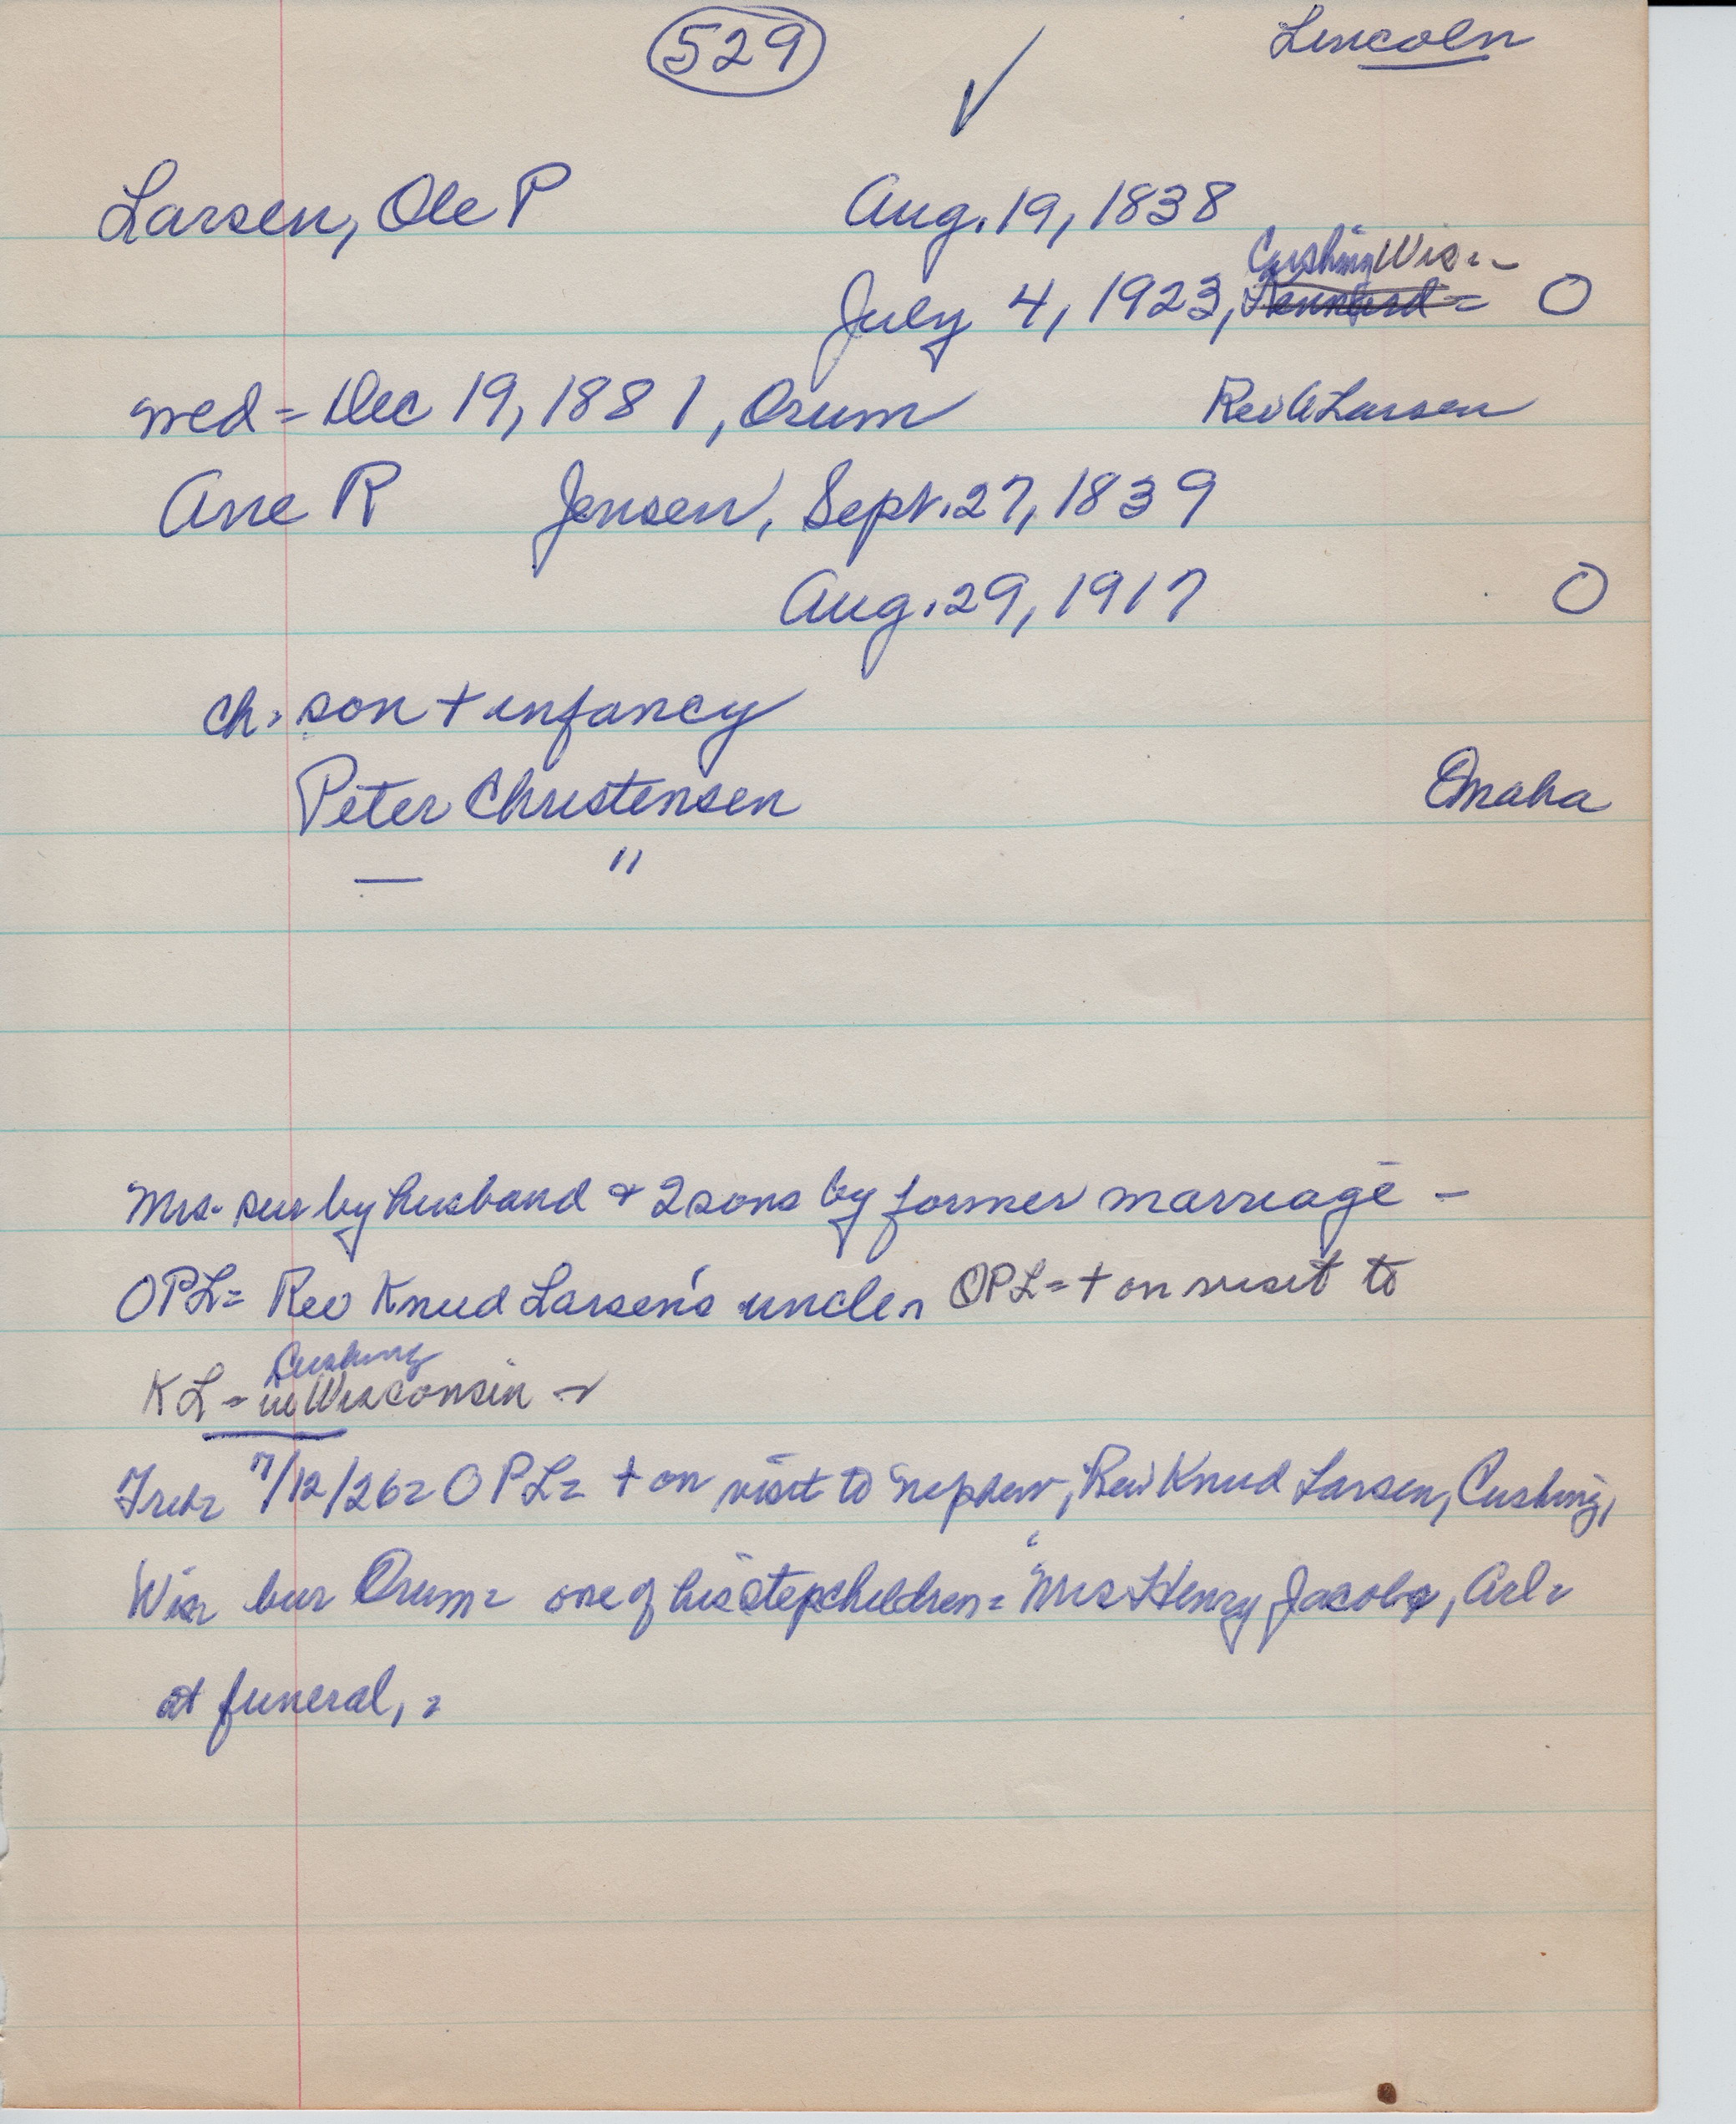 529 Lincoln
Larsen, Ole P Aug. 19, 1838
Cushing Wis.
July 4, 1923, Kennard = O
wed = Dec 19, 1881, Orum Rev A Larsen
Ane R Jensen, Sept. 27, 1839
Aug. 29, 1917 O
ch. son + infancy
Peter Christensen Omaha
— "
Mrs. sur by husband & 2 sons by former marriage -
OPL = Rev Knud Larsen's uncle OPL = + on visit to
Cushing
KL = in Wisconsin
7/12/26 = OPL = + on visit to nephew, Rev Knud Larsen, Cushing,
Wis bur Orum = one of his stepchildren = Mrs Henry Jacobs, Arl =
at funeral, =